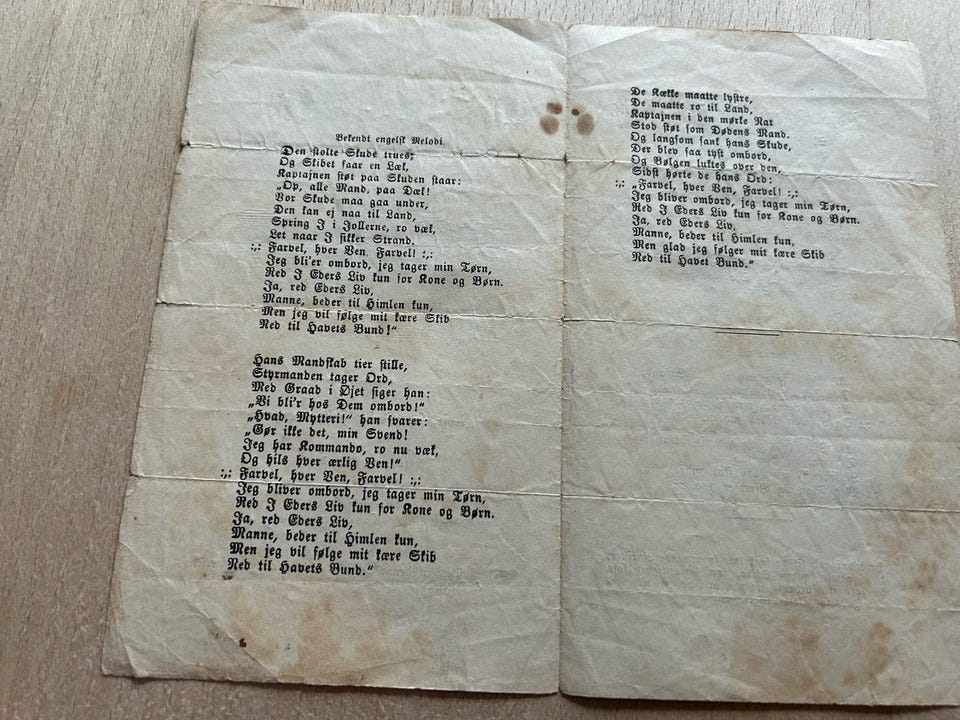 Bekendt engelsk Melodi.
Den stolte Skude trues,
Og Skibet faar en Læk,
Kaptajnen støt paa Skuden staar:
„Op, alle Mand, paa Dæk!
Vor Skude maa gaa under,
Den kan ej naa til Land,
Spring I i Jollerne, ro væk,
Let naar I sikker Strand.
:,: Farvel, hver Ven, Farvel! :,:
Jeg bli'er ombord, jeg tager min Tørn,
Red I Eders Liv kun for Kone og Børn.
Ja, red Eders Liv,
Manne, beder til Himlen kun,
Men jeg vil følge mit kære Skib
Ned til Havets Bund!“
Hans Mandskab tier stille,
Styrmanden tager Ord,
Med Graad i Øjet siger han:
„Vi bli'r hos Dem ombord!“
„Hvad, Mytteri!“ han svarer:
„Gør ikke det, min Svend!
Jeg har Kommando, ro nu væk,
Og hils hver ærlig Ven!“
:,: Farvel, hver Ven, Farvel! :,:
Jeg bliver ombord, jeg tager min Tørn,
Red I Eders Liv kun for Kone og Børn.
Ja, red Eders Liv,
Manne, beder til Himlen kun,
Men jeg vil følge mit kære Skib
Ned til Havets Bund.“
De Kække maatte lystre,
De maatte ro til Land,
Kaptajnen i den mørke Nat
Stod støt som Dødens Mand.
Og langsom sank hans Skude,
Der blev saa tyst ombord,
Og Bølgen luktes over den,
Sidst hørte de hans Ord:
:,: „Farvel, hver Ven, Farvel! :,:
Jeg bliver ombord, jeg tager min Tørn,
Red I Eders Liv kun for Kone og Børn.
Ja, red Eders Liv,
Manne, beder til Himlen kun,
Men glad jeg følger mit kære Skib
Ned til Havet Bund.“